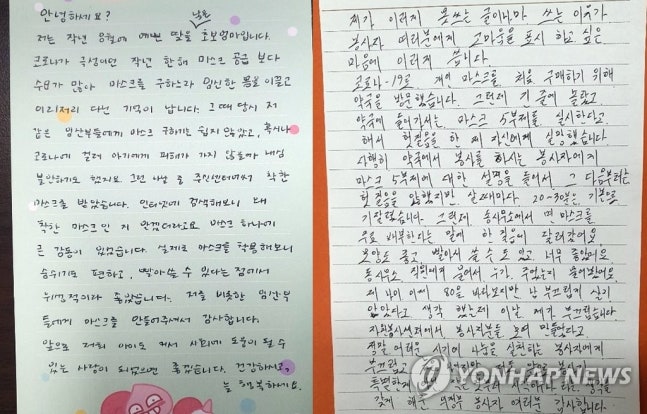 안녕하세요?
저는 작년 8월에 예쁜 딸을 낳은 초보엄마입니다.
코로나가 극성이던 작년 한해 마스크 공급 보다
수요가 많아 마스크를 구하느라 임신한 몸을 이끌고
이리저리 다닌 기억이 납니다. 그때 당시 저
같은 임산부들에게 마스크 구하기는 쉽지 않았고, 혹시나
코로나에 걸려 아기에게 피해가 가지 않을까 내심
불안하기도 했지요 그런 나날 중 주민센터에서 착한
마스크를 받았습니다. 인터넷에 검색해보니 왜
착한 마스크인 지 안겠더라고요 마스크 하나에
큰 감동이 있었습니다. 실제로 마스크를 착용해보니
숨쉬기도 편하고, 빨아쓸 수 있다는 점에서
위생적이라 좋았습니다. 저를 비롯한 임산부
들에게 마스크를 만들어주셔서 감사합니다.
앞으로 저희 아이도 커서 사회에 도움이 될 수
있는 사람이 되었으면 좋겠습니다. 건강하시고,
늘 행복하세요.
제가 이렇게 못쓰는 글이나마 쓰는 이유가
봉사자 여러분에게 고마움을 표시 하고 싶은
마음에 이렇게 씁니다.
코로나-19로 개인 마스크를 처음 구매하기 위해
약국을 방문했습니다. 그런데 긴 줄에 놀랐고
약국에 들어가서는 마스크 5부제를 실시한다고
해서 헛걸음을 한 제 자신에게 실망했습니다.
다행히 약국에서 봉사를 하시는 봉사자에게
마스크 5부제에 대한 설명을 들어서 그 다음부터는
헛걸음을 안했지만 살때마다 20-30분은 기본으로
기다렸습니다. 그런데 동사무소에서 면 마스크를
무료 배부한다는 말에 한 걸음에 달려갔어요
모양도 좋고 빨아서 쓸 수도 있고 너무 좋았어요
동사무소 직원에게 물어서 누가 주었는지 물어봤어요
제 나이 이제 80을 바라보지만 남 부끄럽게 살지
않았다고 생각 했는데 이날 제가 부끄럽습니다.
자원봉사센터에서 봉사자분들 모여 만들었다고
정말 어려운 시기에 나눔을 실천하는 봉사자에게
부끄럽고
특별하게
갖게 해준 의정부 봉사자 여러분 감사합니다.
YONHAP NEWS